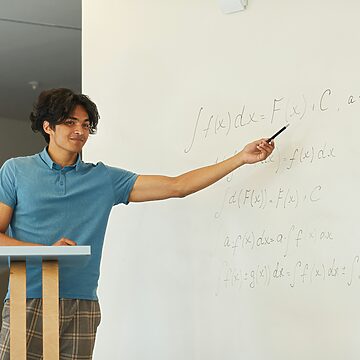 ∫ f(x) dx = F(x) + C , a
f(x) dx
∫ d(F(x)) = F(x) + C
∫ a f(x) dx = a ∫ f(x) dx
∫ (f(x) ± g(x)) dx = ∫ f(x) dx ± ∫